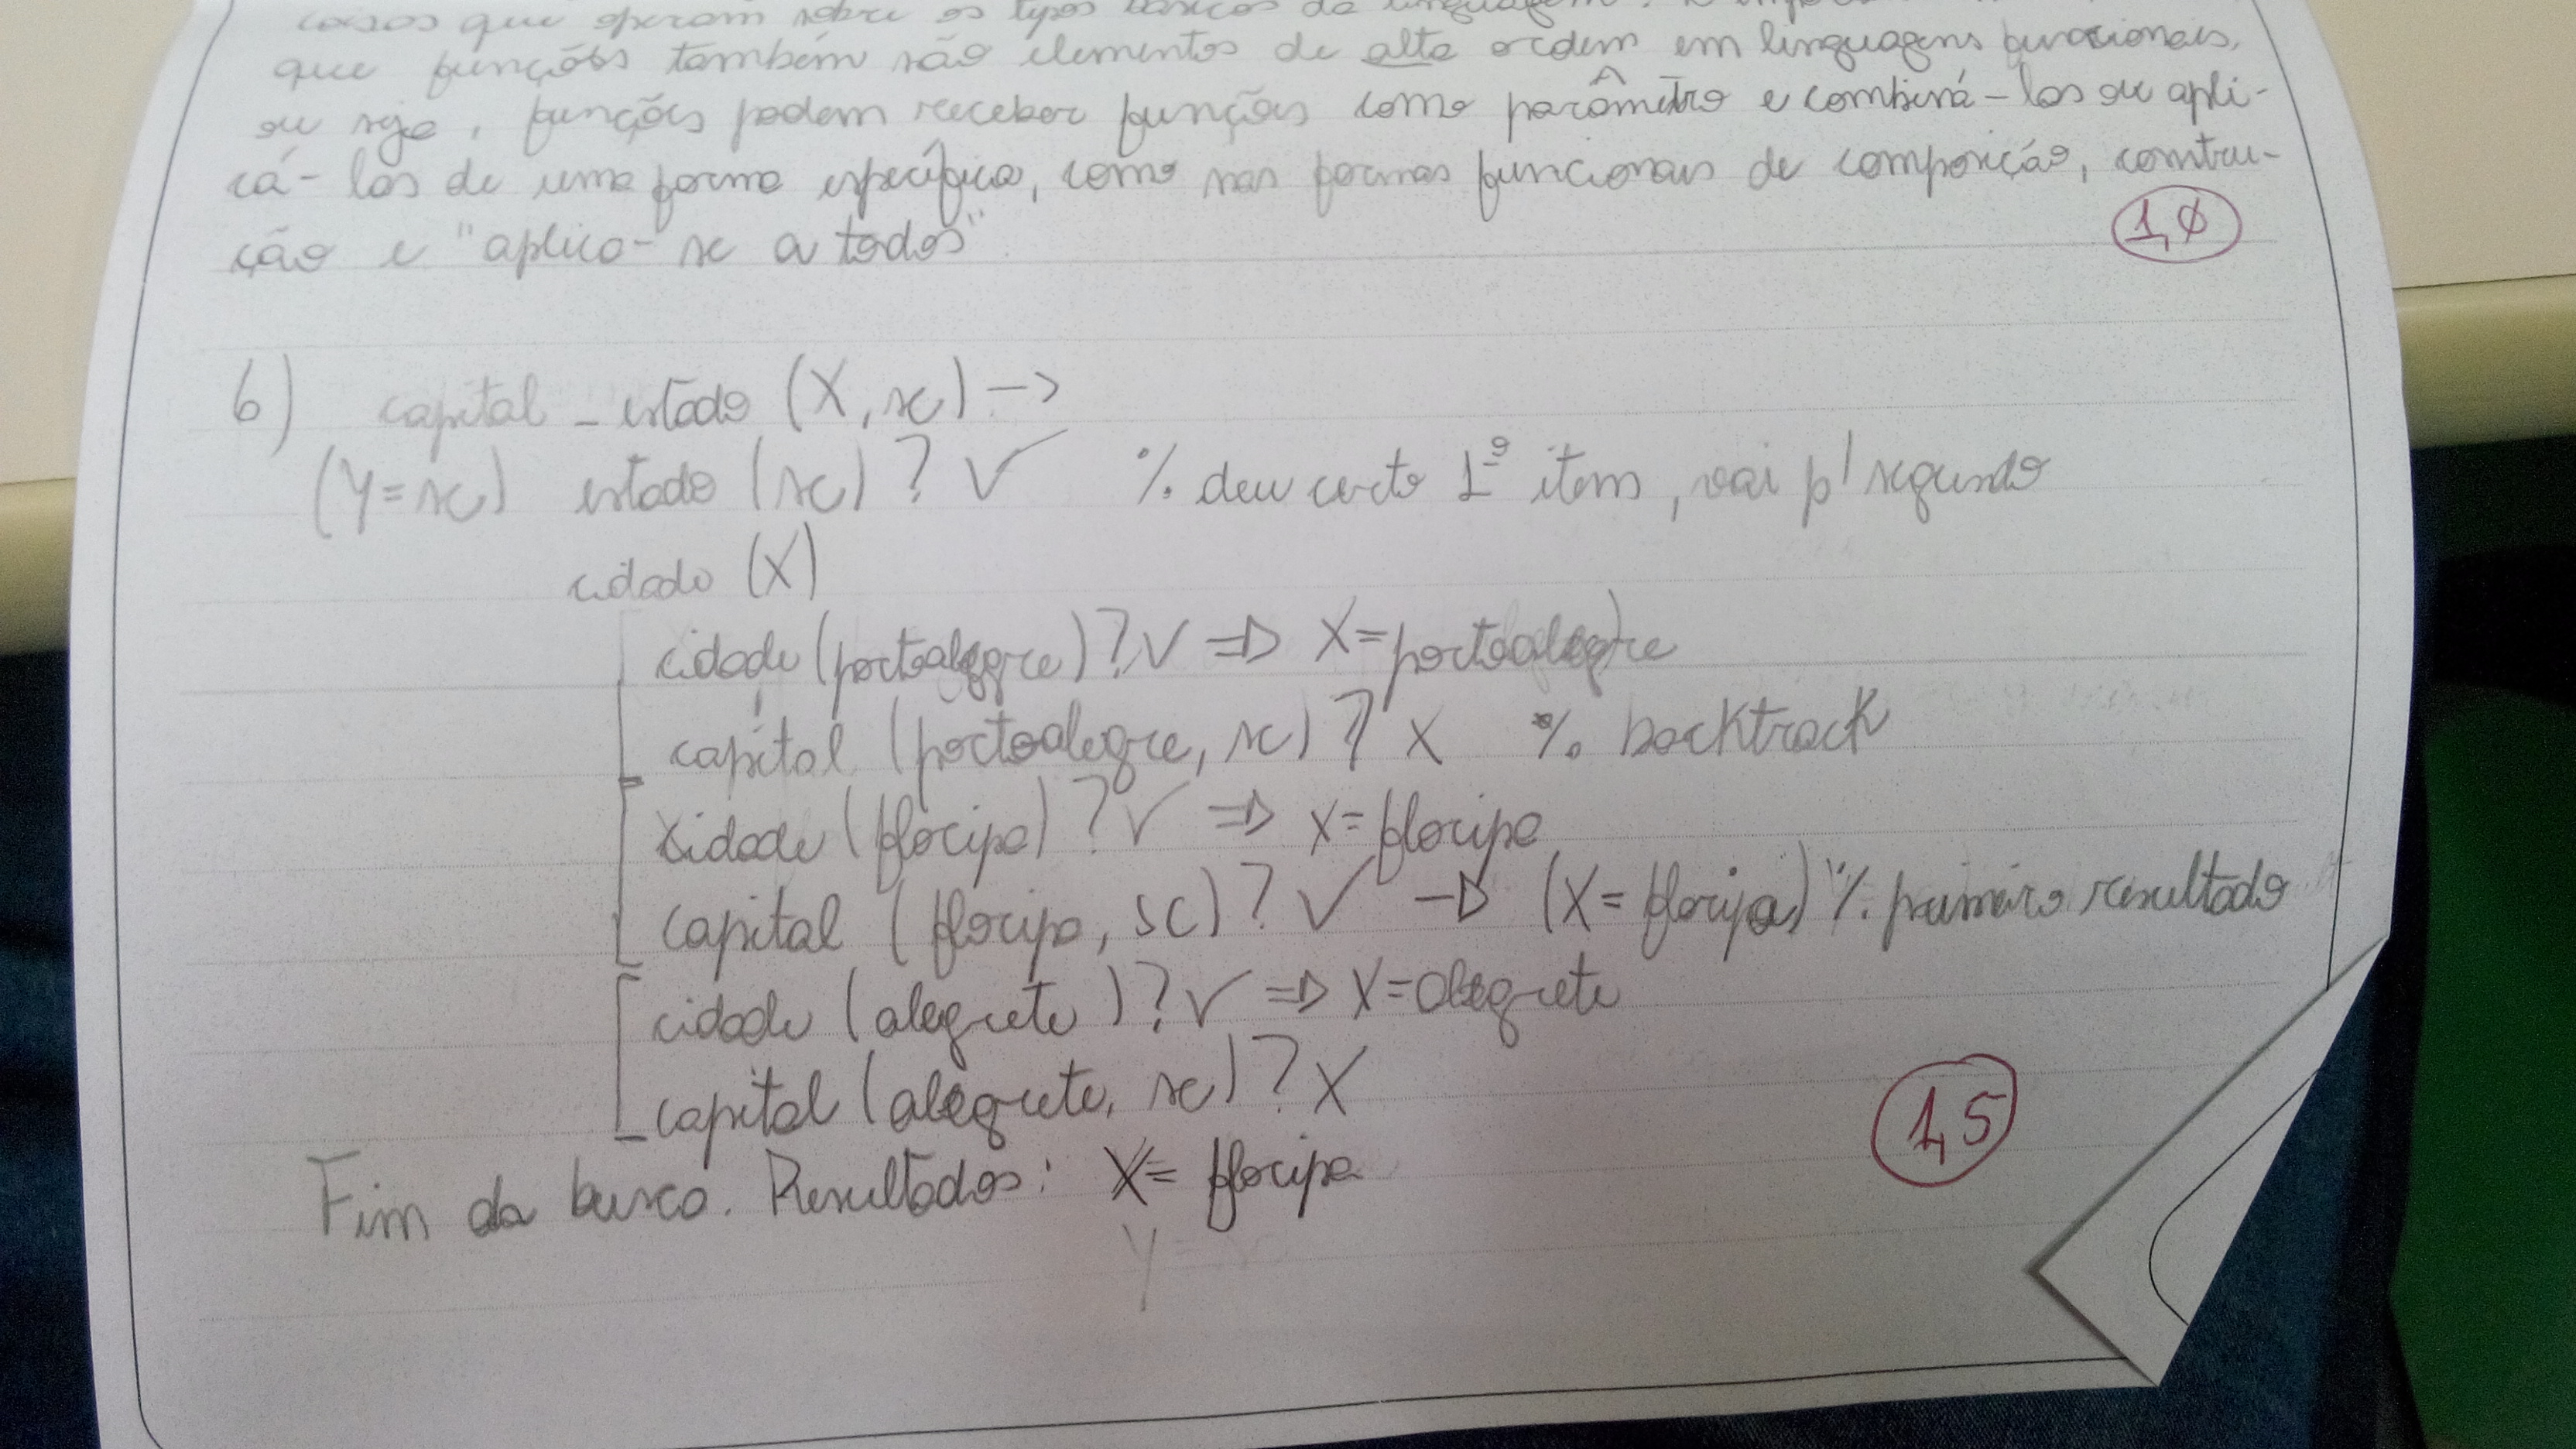 coisas que operam sobre os tipos básicos da linguagem.
que funções também são elementos de alta ordem em linguagens funcionais,
ou seja, funções podem receber funções como parâmetro e combiná-las ou apli-
cá-las de uma forma específica, como nas formas funcionais de composição, constru-
ção e "aplica-se a todos"
1,0
6) capital_estado (X, sc) ->
(Y=sc) estado (sc) ? ✓ % deu certo 1º item, vai p/ segundo
cidade (X)
cidade (portoalegre) ? ✓ => X=portoalegre
capital (portoalegre, sc) ? X % backtrack
cidade (floripa) ? ✓ => X=floripa
capital (floripa, sc) ? ✓ -> (X=floripa) % primeiro resultado
cidade (alegrete) ? ✓ => X=alegrete
capital (alegrete, sc) ? X
1,5
Fim da busca. Resultados: X= floripa